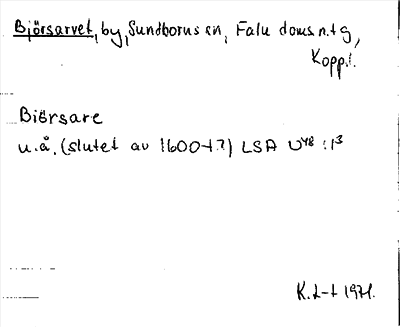 Björsarvet, by, Sundborns sn, Falu doms.n.tg,
Kopp.l.
Biörsare
u.å. (slutet av 1600-t?) LSA U48:13
K.t-t 1971.